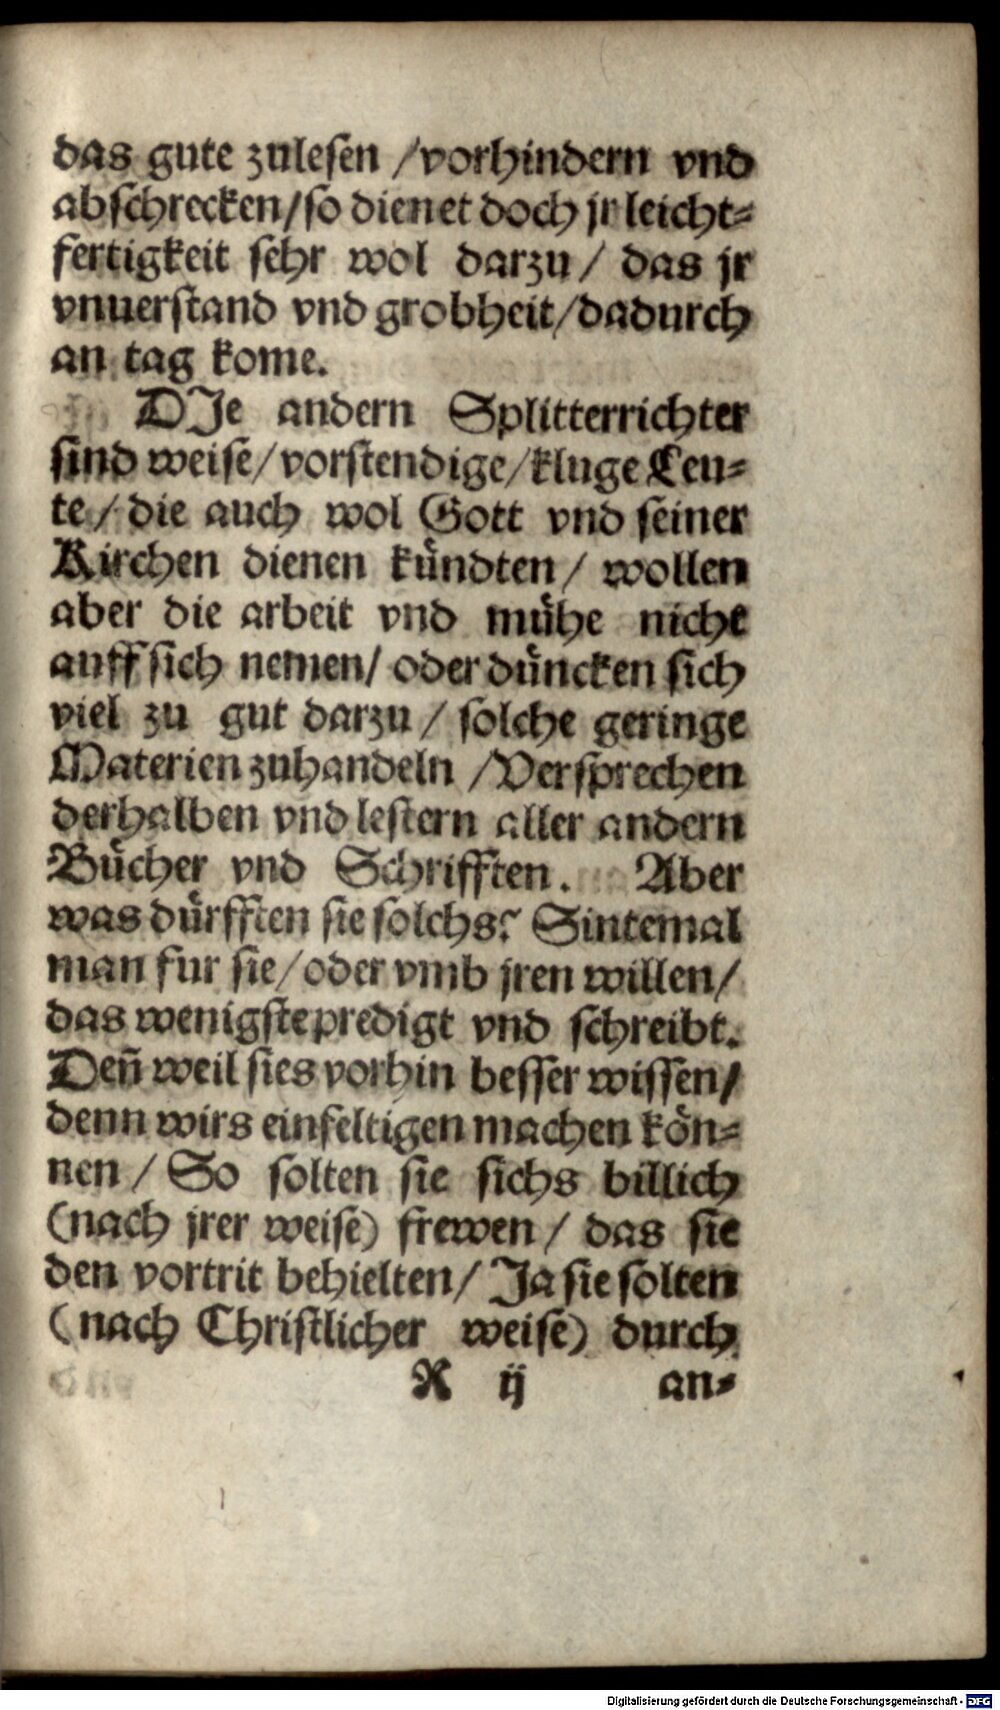 das gute zulesen /vorhindern vnd
abschrecken/so dienet doch jr leicht-
fertigkeit sehr wol darzu/ das jr
vnuerstand vnd grobheit/dadurch
an tag kome.
DJe andern Splitterrichter
sind weise/vorstendige/kluge Leu-
te/ die auch wol Gott vnd seiner
Kirchen dienen kündten/ wollen
aber die arbeit vnd mühe nicht
auff sich nemen/ oder düncken sich
viel zu gut darzu/ solche geringe
Materien zuhandeln /Versprechen
derhalben vnd lestern aller andern
Bücher vnd Schrifften. Aber
was dürfften sie solchs? Sintemal
man fur sie/oder vmb jren willen/
das wenigste predigt vnd schreibt.
Deñ weil sies vorhin besser wissen/
denn wirs einfeltigen machen kön-
nen/ So solten sie sichs billich
(nach jrer weise) frewen/ das sie
den vortrit behielten/ Ja sie solten
(nach Christlicher weise) durch
K ij an-
Digitalisierung gefördert durch die Deutsche Forschungsgemeinschaft - DFG